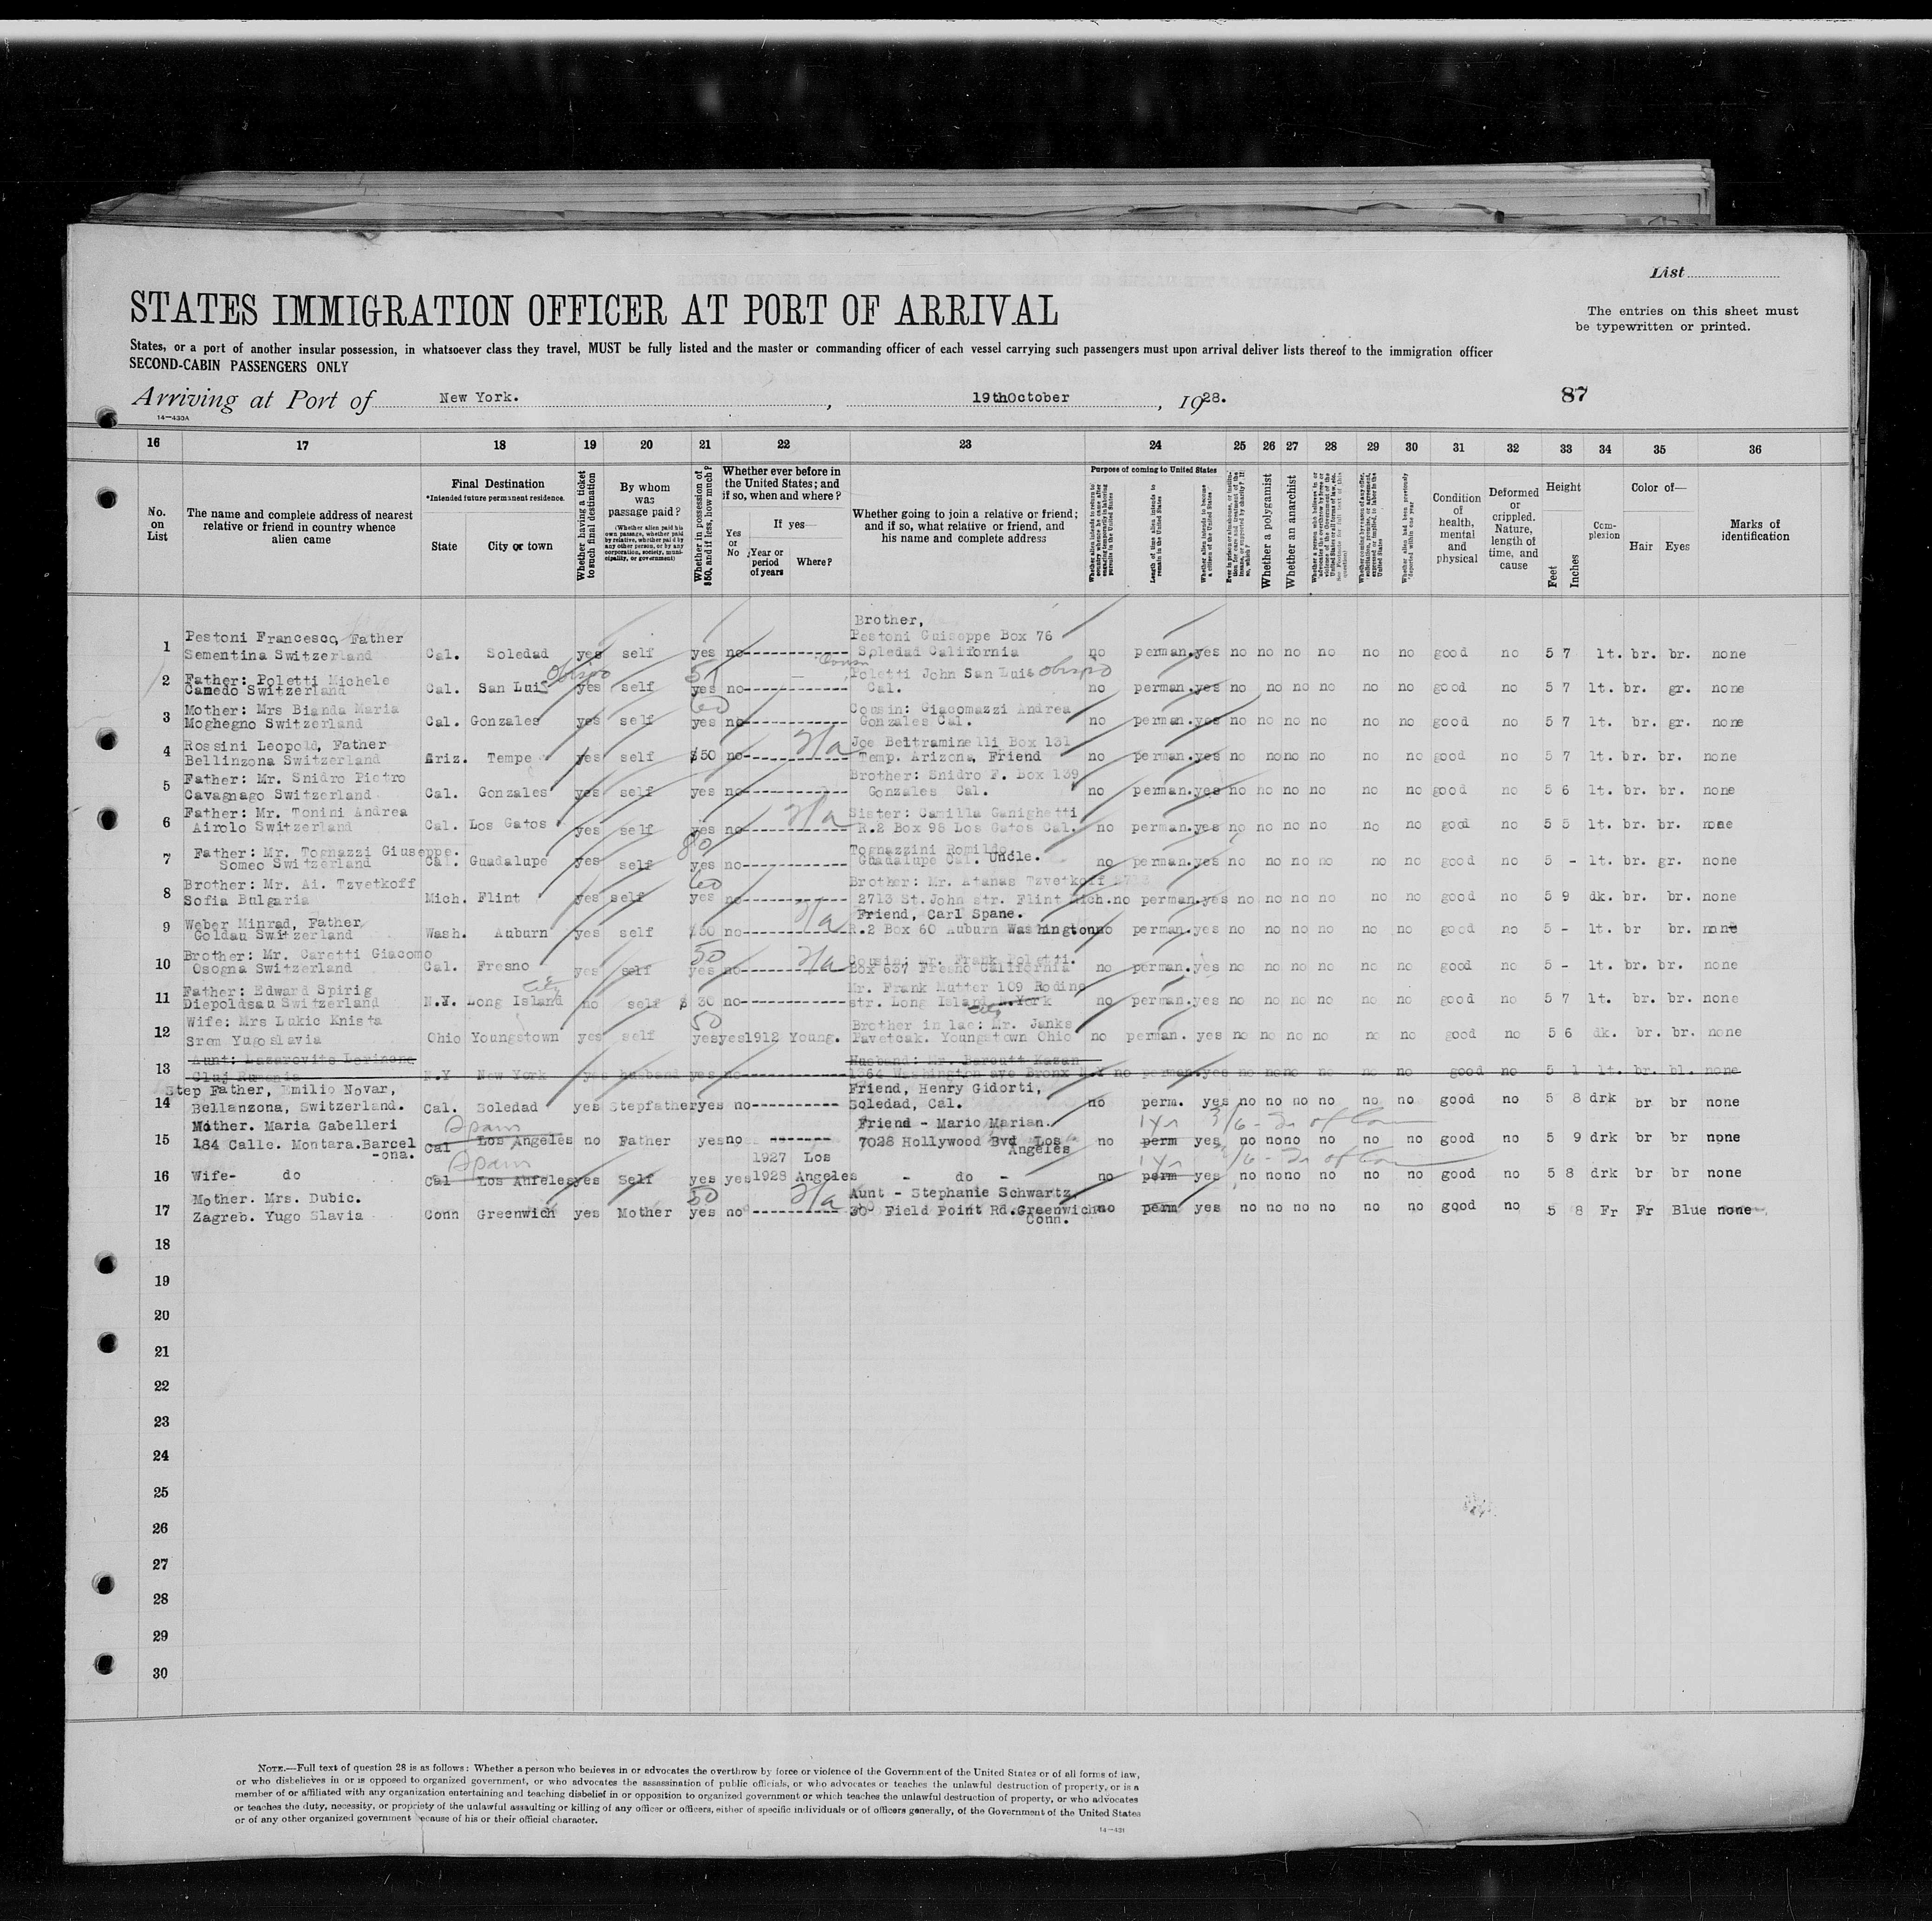 List
STATES IMMIGRATION OFFICER AT PORT OF ARRIVAL
The entries on this sheet must
be typewritten or printed.
States, or a port of another insular possession, in whatsoever class they travel, MUST be fully listed and the master or commanding officer of each vessel carrying such passengers must upon arrival deliver lists thereof to the immigration officer
SECOND-CABIN PASSENGERS ONLY
Arriving at Port of New York. , 19thOctober , 1928. 87
14—430A
16 17 18 19 20 21 22 23 24 25 26 27 28 29 30 31 32 33 34 35 36
No. on List
The name and complete address of nearest relative or friend in country whence alien came
Final Destination
*Intended future permanent residence.
State
City or town
Whether having a ticket to such final destination
By whom was passage paid?
(Whether alien paid his own passage, whether paid by relative, whether paid by any other person, or by any corporation, society, municipality, or government)
Whether in possession of $50, and if less, how much?
Whether ever before in the United States; and if so, when and where?
Yes or No
If yes—
Year or period of years
Where?
Whether going to join a relative or friend; and if so, what relative or friend, and his name and complete address
Purpose of coming to United States
Whether alien intends to return to country whence he came after engaging temporarily in laboring pursuits in the United States
Length of time alien intends to remain in the United States
Whether alien intends to become a citizen of the United States
Ever in prison or almshouse, or institution for care and treatment of the insane, or supported by charity? If so, which?
Whether a polygamist
Whether an anarchist
Whether alien had been previously deported within one year
Condition of health, mental and physical
Deformed or crippled. Nature, length of time, and cause
Height
Feet
Inches
Complexion
Color of—
Hair
Eyes
Marks of identification
Brother,
1 Pestoni Francesco, Father Pestoni Guiseppe Box 76
Sementina Switzerland Cal. Soledad yes self yes no---------- Spledad California no perman.yes no no no no no no good no 5 7 lt. br. br. none
Obispo 51 Cousin
2 Father: Poletti Michele Poletti John San Luis obispo
Camedo Switzerland Cal. San Luis yes self yes no---------- Cal. no perman.yes no no no no no no good no 5 7 lt. br. gr. none
60
3 Mother: Mrs Bianda Maria Cousin: Giacomazzi Andrea
Moghegno Switzerland Cal. Gonzales yes self yes no---------- Gonzales Cal. no perman.yes no no no no no no good no 5 7 lt. br. gr. none
4 Rossini Leopold, Father Joe Beltraminelli Box 131
Bellinzona Switzerland Ariz. Tempe yes self $50 no---------- Temp. Arizona, Friend no perman.yes no nono no no no good no 5 7 lt. br. br. none
5 Father: Mr. Snidro Pietro Brother: Snidro F. Box 139
Cavagnago Switzerland Cal. Gonzales yes self yes no---------- Gonzales Cal. no perman.yes no no no no no no good no 5 6 lt. br. br. none
6 Father: Mr. Tonini Andrea Sister: Camilla Ganighetti
Airolo Switzerland Cal. Los Gatos yes self yes no---------- R.2 Box 98 Los Gatos Cal. no perman.yes no no no no no no good no 5 5 lt. br. br. none
80
7 Father: Mr. Tognazzi Giuseppe. Tognazzini Romildo
Someo Switzerland Cal. Guadalupe yes self yes no---------- Guadalupe Cal. Uncle. no perman.yes no no no no no no good no 5 - lt. br. gr. none
60
8 Brother: Mr. Ai. Tzvetkoff Brother: Mr. Atanas Tzvetkoff 2713
Sofia Bulgaria Mich. Flint yes self yes no---------- 2713 St.John str. Flint Mich.no perman.yes no no no no no no good no 5 9 dk. br. br. none
9 Weber Minrad, Father Friend, Carl Spane.
Goldau Switzerland Wash. Auburn yes self $50 no---------- R.2 Box 60 Auburn Washingtonno perman.yes no no no no no no good no 5 - lt. br br. none
50
10 Brother: Mr. Caretti Giacomo Cousin: Mr. Frank Poletti.
Osogna Switzerland Cal. Fresno yes self yes no---------- Box 637 Fresno California no perman.yes no no no no no no good no 5 - lt. br. br. none
City
11 Father: Edward Spirig Mr. Frank Mutter 109 Roding
Diepoldsau Switzerland N.Y. Long Island no self $ 30 no---------- str. Long Island N.York no perman.yes no no no no no no good no 5 7 lt. br. br. none
50 City
12 Wife: Mrs Lukic Knista Brother in lac: Mr. Janks
Srem Yugoslavia Ohio Youngstown yes self yesyes1912 Young. Pavetcak. Youngstown Ohio no perman. yes no no no no no no good no 5 6 dk. br. br. none
13 Aunt: Lazarovits Husband: Mr. Baroutt Kazan
Cluj Rumania N.Y New York yes husband yes no 1364 Washington ave Bronx N.Y no perman.yes no nono no no no good no 5 1 lt. br. bl. none
14 Step Father, Emilio Novar, Friend, Henry Gidorti,
Bellanzona, Switzerland. Cal. Soledad yes Stepfatheryes no---------- Soledad, Cal. no perm. yes no no no no no no good no 5 8 drk br br none
Spain 1 yr
15 Mother. Maria Gabelleri Friend - Mario Marian.
184 Calle. Montara.Barcel Cal Los Angeles no Father yesno ------- 7028 Hollywood Bvd Los no perm yes no nono no no no good no 5 9 drk br br none
-ona. Angeles
Spain 1927 Los 1 yr
16 Wife- do Cal Los Anfelesyes Self yes yes1928 Angeles - do - no perm yes no nono no no no good no 5 8 drk br br none
50
17 Mother. Mrs. Dubic. Aunt - Stephanie Schwartz.
Zagreb. Yugo Slavia Conn Greenwich yes Mother yes no ---------- 30 Field Point Rd.Greenwichno perm yes no no no no no no good no 5 8 Fr Fr Blue none
Conn.
18
19
20
21
22
23
24
25
26
27
28
29
30
NOTE.—Full text of question 28 is as follows: Whether a person who believes in or advocates the overthrow by force or violence of the Government of the United States or of all forms of law,
or who disbelieves in or is opposed to organized government, or who advocates the assassination of public officials, or who advocates or teaches the unlawful destruction of property, or is a
member of or affiliated with any organization entertaining and teaching disbelief in or opposition to organized government or which teaches the unlawful destruction of property, or who advocates
or teaches the duty, necessity, or propriety of the unlawful assaulting or killing of any officer or officers, either of specific individuals or of officers generally, of the Government of the United States
or of any other organized government because of his or their official character.
14—431